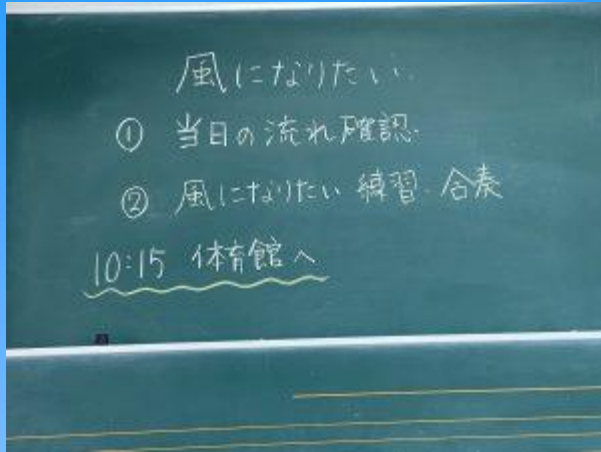 風になりたい.
① 当日の流れ確認.
② 風になりたい 練習.合奏
10:15 体育館へ